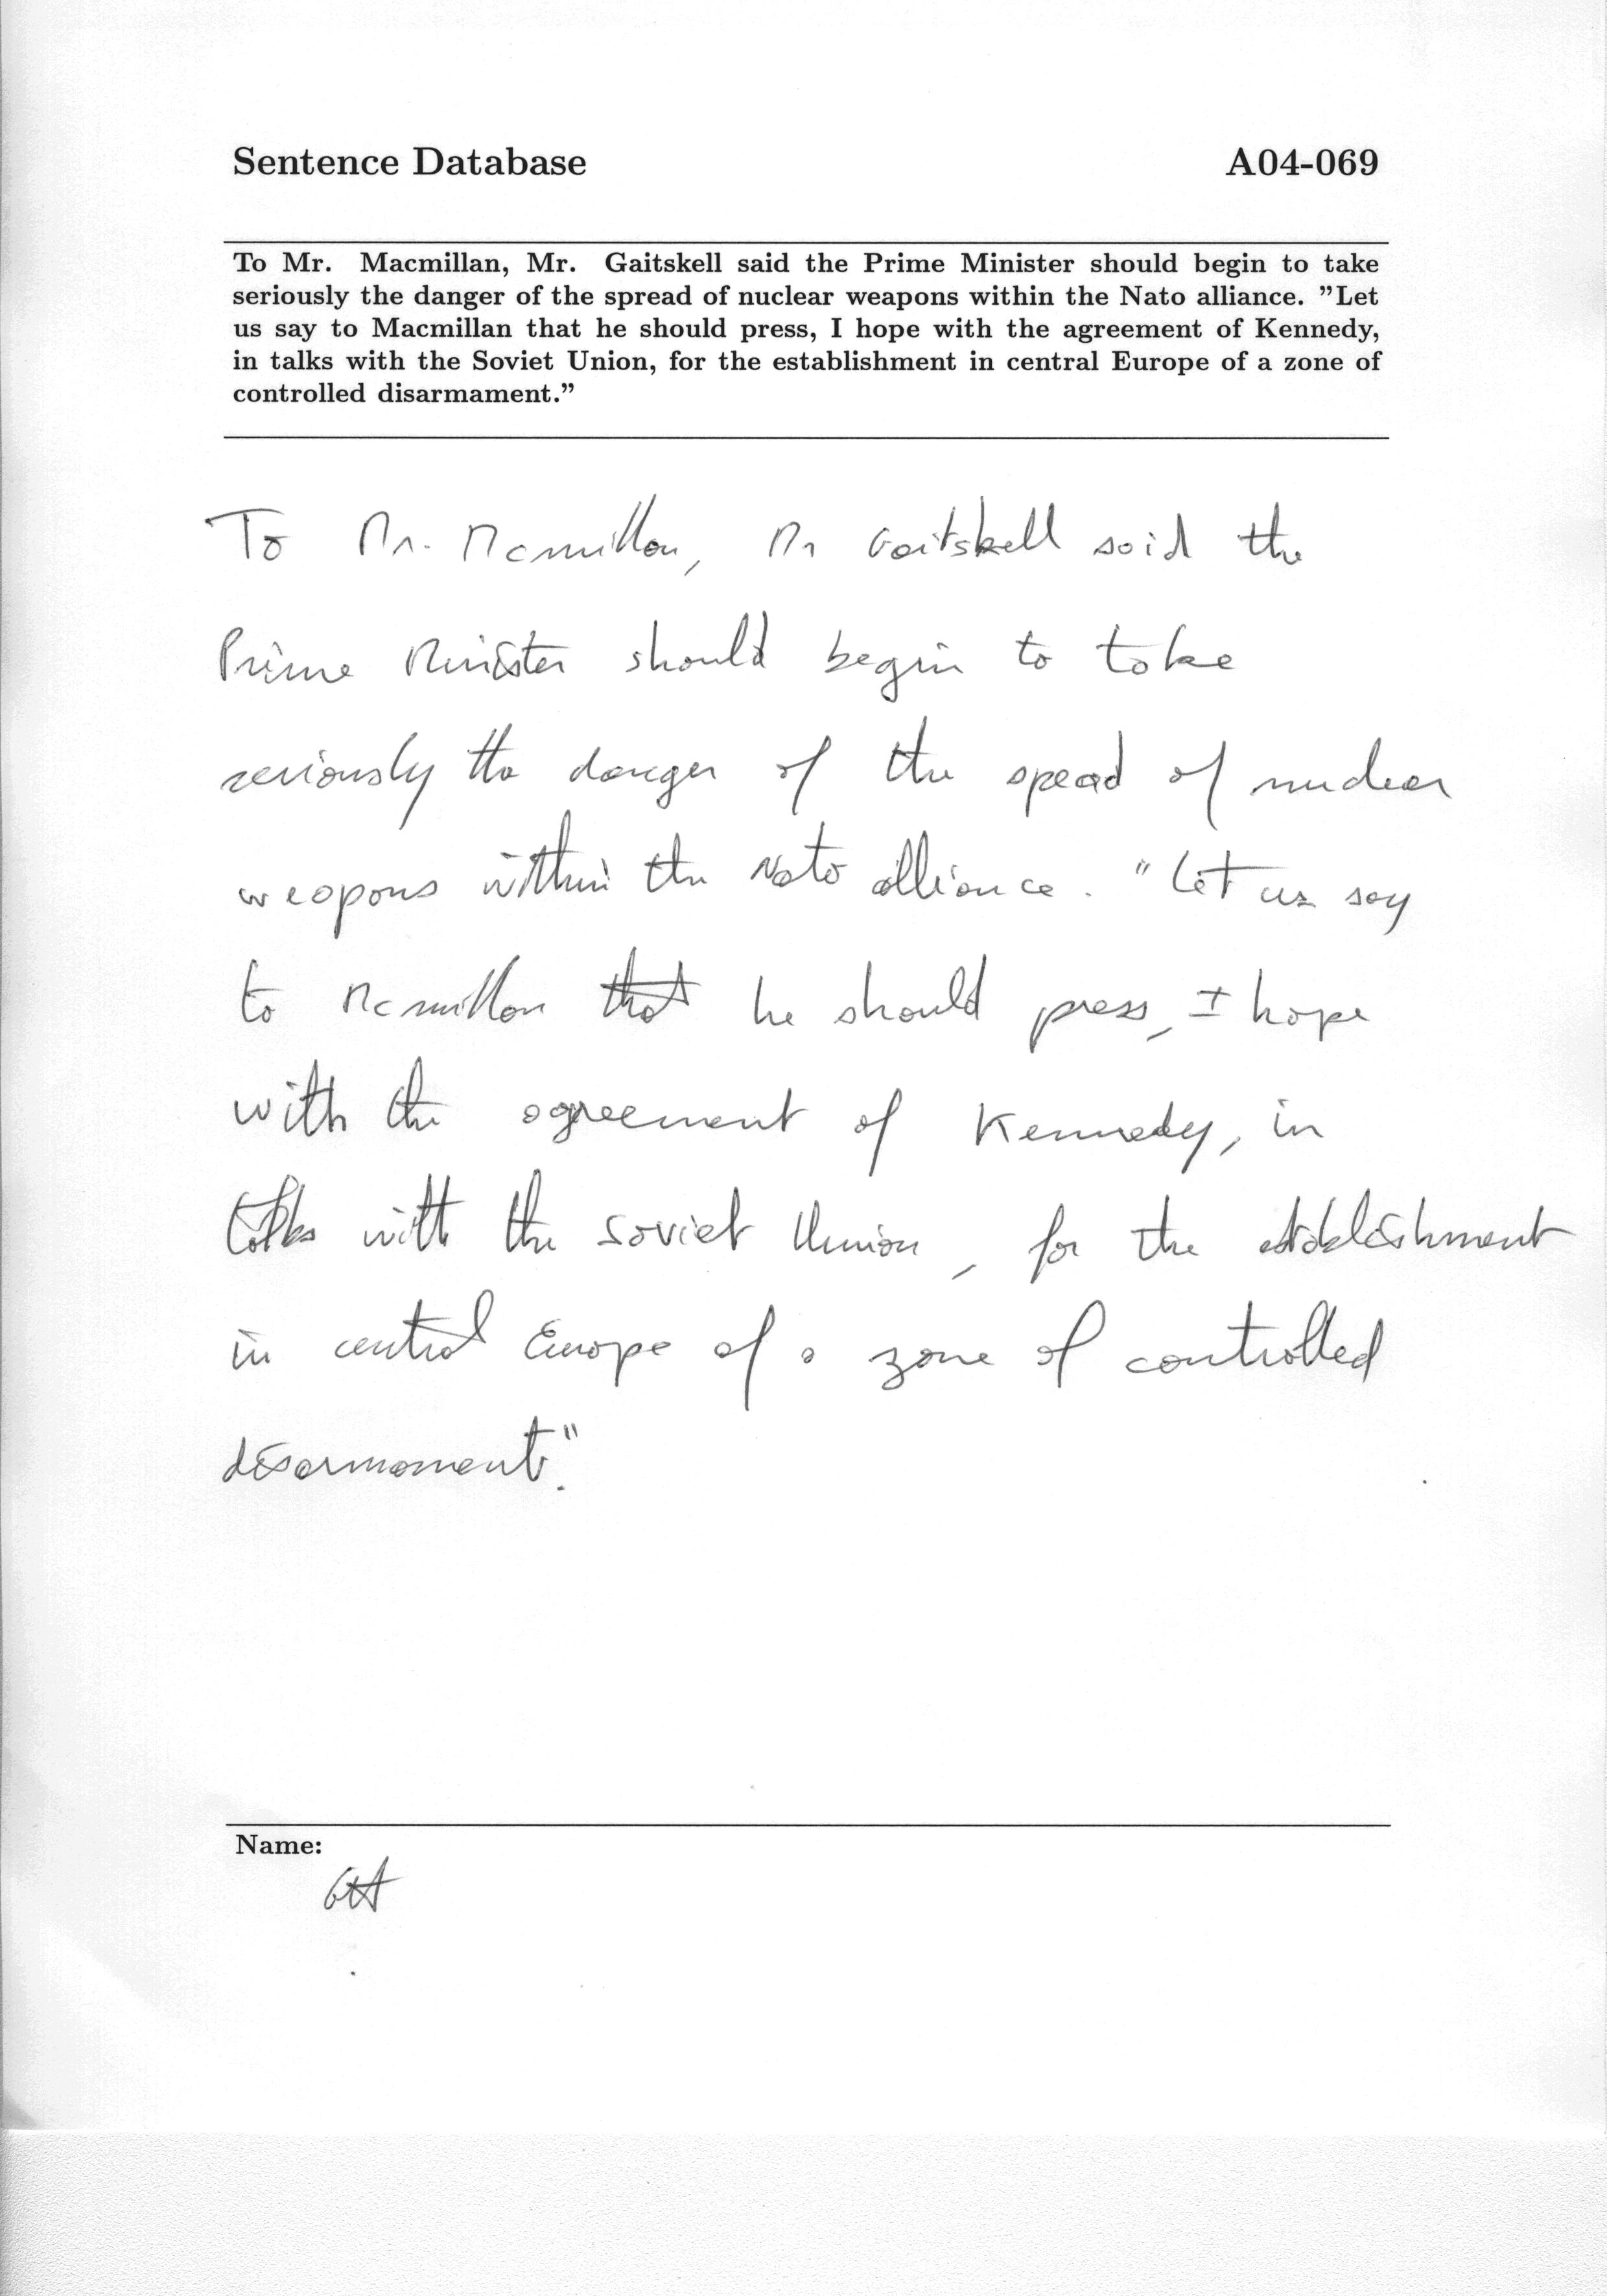 Sentence Database A04-069
To Mr. Macmillan, Mr. Gaitskell said the Prime Minister should begin to take
seriously the danger of the spread of nuclear weapons within the Nato alliance. ”Let
us say to Macmillan that he should press, I hope with the agreement of Kennedy,
in talks with the Soviet Union, for the establishment in central Europe of a zone of
controlled disarmament.”
To Mr. Mcmillan, Mr Gaitskell said the
Prime Minister should begin to take
seriously the danger of the spead of nuclear
weapons within the Nato alliance. "Let us say
to Mcmillan that he should press, I hope
with the agreement of Kennedy, in
talks with the Soviet Union, for the establishment
in central Europe of a zone of controlled
disarmament."
Name: